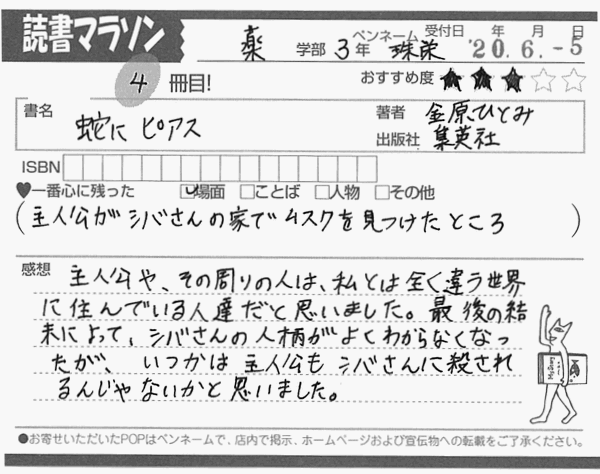 読書マラソン
薬 学部 3年 ペンネーム 珠栄 受付日 年 月 日 '20.6.-5
4 冊目! おすすめ度 ★★★☆☆
書名 蛇にピアス
著者 金原ひとみ
出版社 集英社
ISBN
♥一番心に残った ☑場面 □ことば □人物 □その他
(主人公がシバさんの家でムスクを見つけたところ)
感想 主人公や、その周りの人は、私とは全く違う世界
に住んでいる人達だと思いました。最後の結
末によって、シバさんの人柄がよくわからなくなっ
たが、いつかは主人公もシバさんに殺され
るんじゃないかと思いました。
●お寄せいただいたPOPはペンネームで、店内で掲示、ホームページおよび宣伝物への転載をご了承ください。